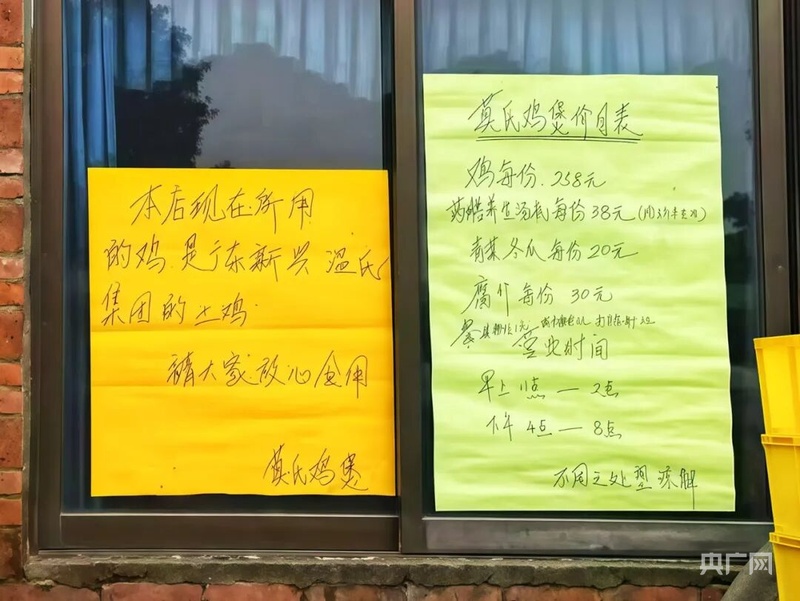 本店现在所用
的鸡是广东新兴温氏
集团的土鸡.
请大家放心食用
莫氏鸡煲
莫氏鸡煲价目表
鸡每份.258元
药膳养生汤底每份38元
青菜冬瓜每份20元
腐竹每份30元
营业时间
早上11点—2点
下午4点—8点
不周之处望谅解
央广网